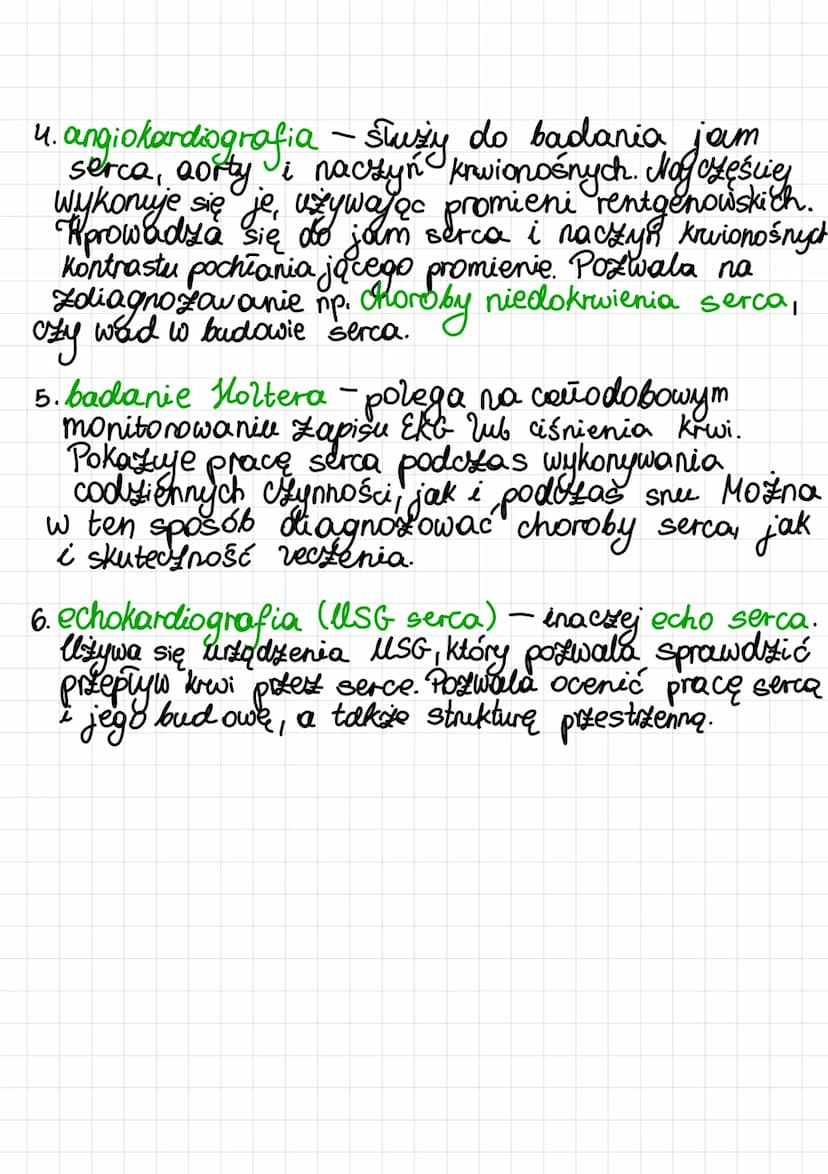 4. angiokardiografia – służy do badania jam
serca, aorty i naczyń krwionośnych. Najczęściej
wykonuje się je, używając promieni rentgenowskich.
Wprowadza się do jam serca i naczyń krwionośnych
kontrastu pochłaniającego promienie. Pozwala na
zdiagnozowanie np. choroby niedokrwienia serca,
czy wad w budowie serca.
5. badanie Holtera – polega na całodobowym
monitorowaniu zapisu EKG lub ciśnienia krwi.
Pokazuje pracę serca podczas wykonywania
codziennych czynności, jak i podczas snu Można
w ten sposób diagnozować choroby serca, jak
i skuteczność leczenia.
6. echokardiografia (USG serca) – inaczej echo serca.
Używa się urządzenia USG, który pozwala sprawdzić
przepływ krwi przez serce. Pozwala ocenić pracę serca
i jego budowę, a także strukturę przestrzenną.